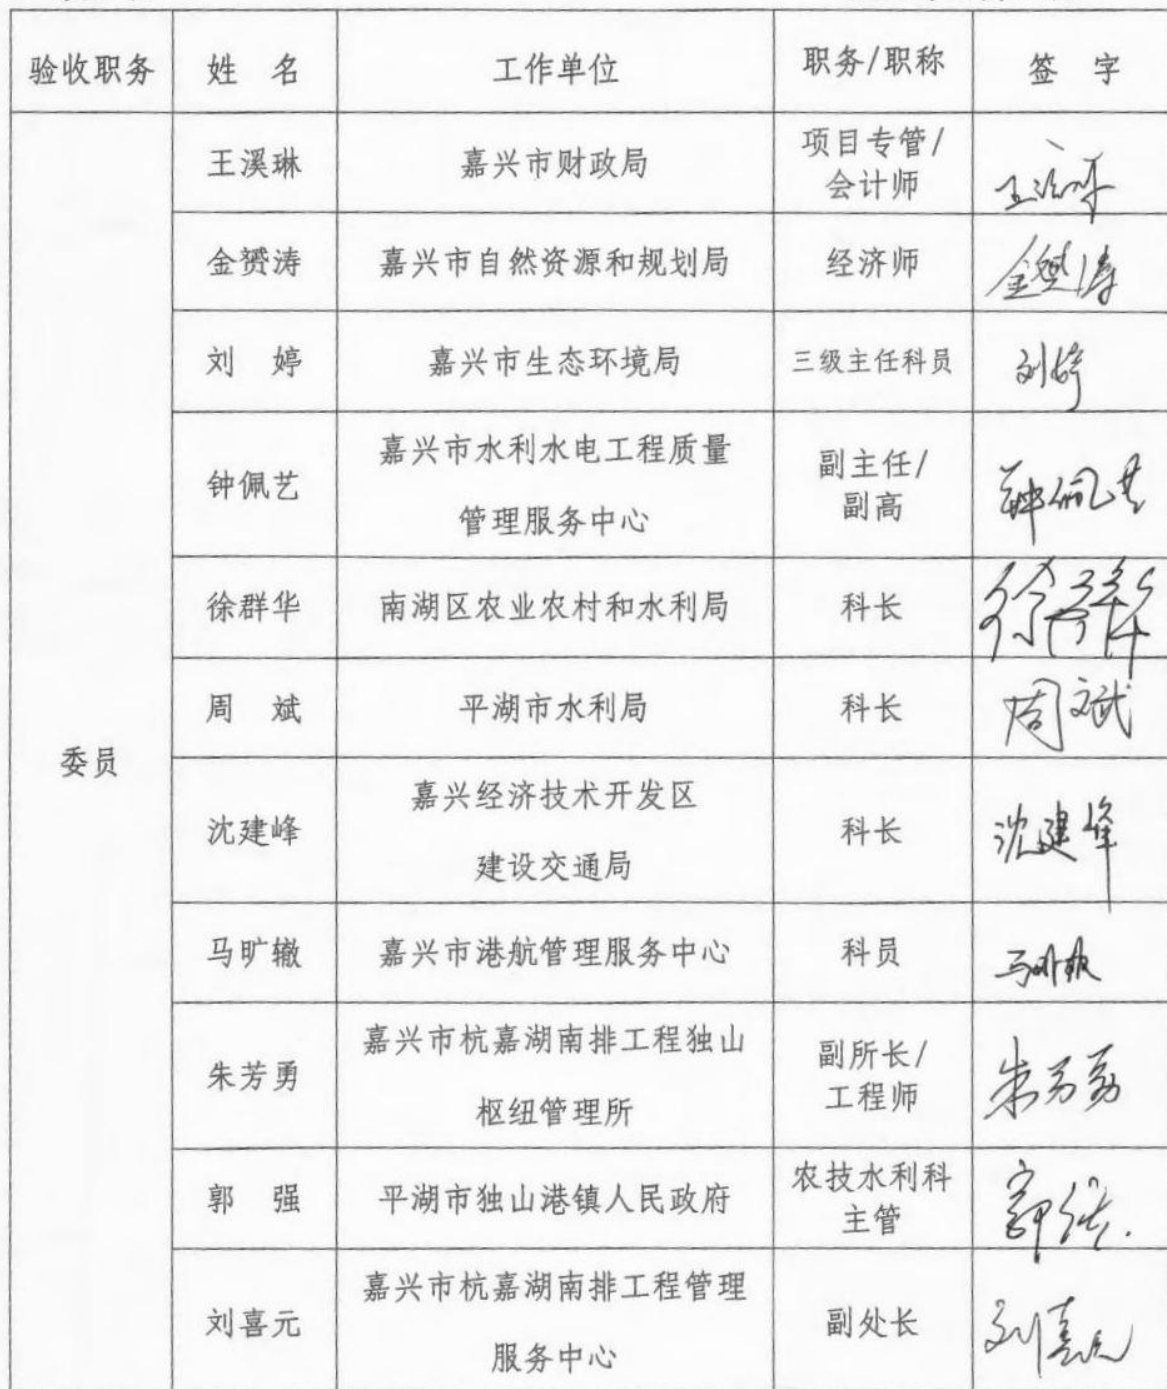 验收职务 姓 名 工作单位 职务/职称 签 字
王溪琳 嘉兴市财政局 项目专管/
会计师
金赟涛 嘉兴市自然资源和规划局 经济师 金赟涛
刘 婷 嘉兴市生态环境局 三级主任科员 刘婷
钟佩艺 嘉兴市水利水电工程质量
管理服务中心 副主任/
副高 钟佩艺
徐群华 南湖区农业农村和水利局 科长 徐群华
周 斌 平湖市水利局 科长 周斌
委员
沈建峰 嘉兴经济技术开发区
建设交通局 科长 沈建峰
马旷辙 嘉兴市港航管理服务中心 科员 马旷辙
朱芳勇 嘉兴市杭嘉湖南排工程独山
枢纽管理所 副所长/
工程师 朱芳勇
郭 强 平湖市独山港镇人民政府 农技水利科
主管 郭强
刘喜元 嘉兴市杭嘉湖南排工程管理
服务中心 副处长 刘喜元